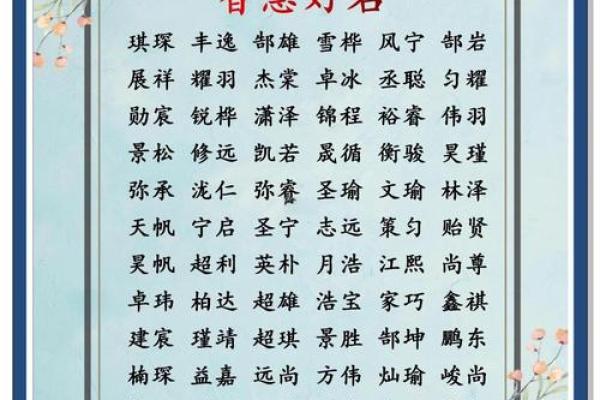 智慧好名
琪琛 丰逸 郜雄 雪桦 风宁 郜岩
展祥 耀羽 杰棠 卓冰 丞聪 匀耀
勋宸 锐桦 潇泽 锦程 裕睿 伟羽
景松 修远 凯若 晟循 衡骏 昊瑾
弥承 泷仁 弥睿 圣瑜 文瑜 林泽
天帆 宁启 圣宁 志远 策匀 贻贤
昊帆 超利 英朴 月浩 江熙 尚尊
卓玮 柏达 超雄 浩宝 家巧 鑫祺
建宸 瑾靖 超琪 景胜 郜坤 鹏东
楠琛 益嘉 远尚 方伟 灿瑜 峻尚